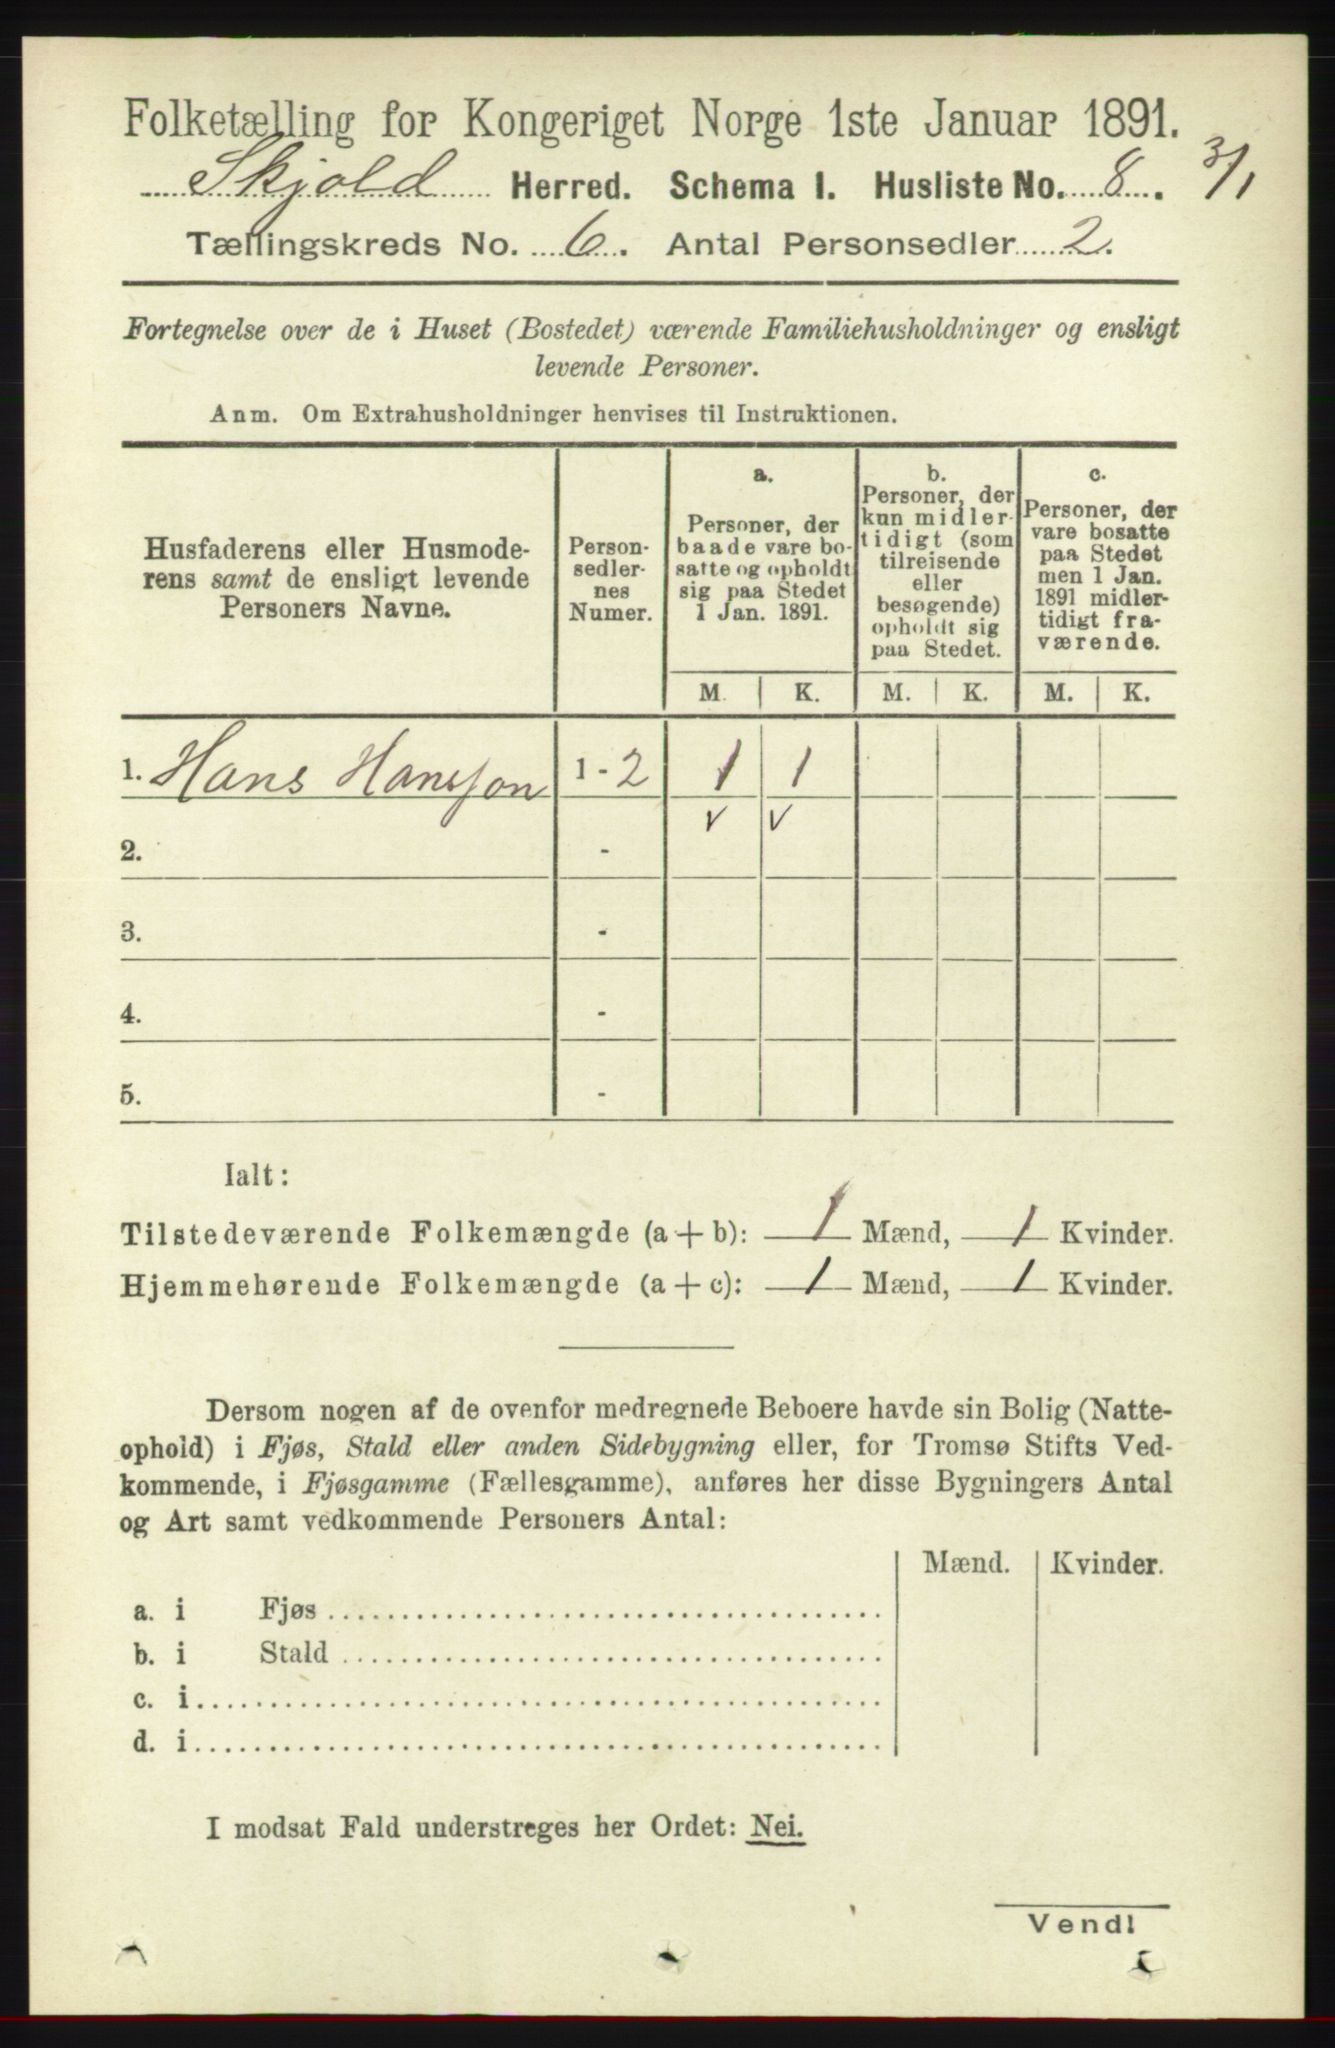 Folketælling for Kongeriget Norge 1ste Januar 1891.
Skjold Herred. Schema 1. Husliste No. 8. 3/1
Tællingskreds No. 6. Antal Personsedler 2.
Fortegnelse over de i Huset (Bostedet) værende Familiehusholdninger og ensligt
levende Personer.
Anm. Om Extrahusholdninger henvises til Instruktionen.
Husfaderens eller Husmode-
rens samt de ensligt levende
Personers Navne.
Person-
sedler-
nes
Numer.
a.
Personer, der
baade vare bo-
satte og opholdt
sig paa Stedet
1 Jan. 1891.
b.
Personer, der
kun midler-
tidigt (som
tilreisende
eller
besøgende)
opholdt sig
paa Stedet.
c.
Personer, der
vare bosatte
paa Stedet
men 1 Jan.
1891 midler-
tidigt fra-
værende.
M. K. M. K. M. K.
1. Hans Hansson 1 - 2 1 1
v v
2. -
3. -
4. -
5. -
Ialt:
Tilstedeværende Folkemængde (a + b): 1 Mænd, 1 Kvinder.
Hjemmehørende Folkemængde (a + c): 1 Mænd, 1 Kvinder.
Dersom nogen af de ovenfor medregnede Beboere havde sin Bolig (Natte-
ophold) i Fjøs, Stald eller anden Sidebygning eller, for Tromsø Stifts Ved-
kommende, i Fjøsgamme (Fællesgamme), anføres her disse Bygningers Antal
og Art samt vedkommende Personers Antal:
Mænd. Kvinder.
a. i Fjøs
b. i Stald
c. i
d. i
I modsat Fald understreges her Ordet: Nei.
Vend!